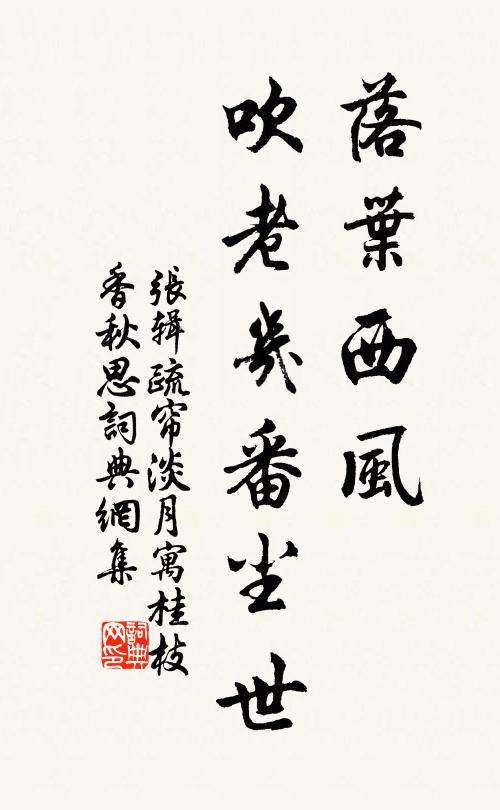 落葉西風
吹老幾番尘世
張辑疏帘淡月寓桂枝
香秋思詞典網集
詞典
网印